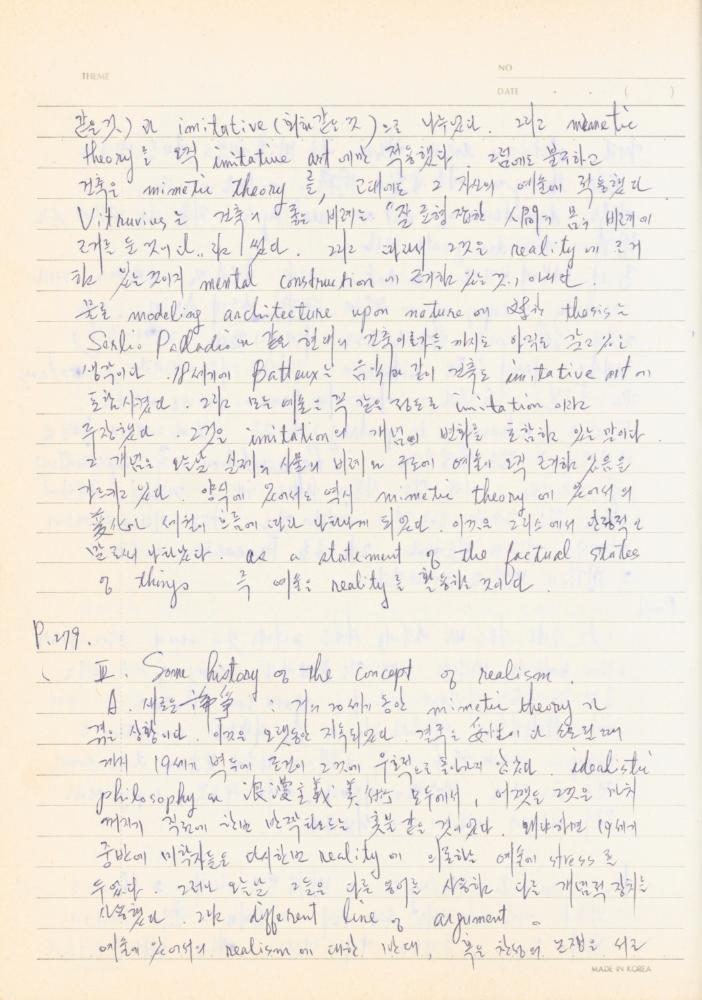 THEME
NO
DATE . . ( )
같은 것) 과 imitative (회화 같은 것) 으로 나누었다. 그리고 mimetic
theory를 오직 imitative art에만 적용했다. 그럼에도 불구하고
건축은 mimetic theory를, 고대에도 그 자신의 예술에 적용했다.
Vitruvius는 건축의 좋은 비례는 "잘 균형잡힌 人間의 몸의 비례에
근거를 둔 것이다" 라고 썼다. 그리고 따라서 그것은 reality에 근거
하고 있는 것이지 mental construction에 근거하고 있는 것이 아니다.
물론 modeling architecture upon nature에 thesis는
Serlio Palladio와 같은 현대의 건축이론가들 까지도 아직도 갖고 있는
생각이다. 18세기에 Batteux는 음악과 같이 건축도 imitative art에
포함시켰다. 그리고 모든 예술은 꼭 같은 정도로 imitation이라고
주장했다. 그것은 imitation의 개념의 변화를 포함하고 있는 말이다.
그 개념은 오늘날 실제의 사물의 비례와 구조에 예술이 오직 근거하고 있음을
가르키고 있다. 양식에 있어서도 역시 mimetic theory에 있어서의
變化는 세월의 흐름에 따라 나타나게 되었다. 이것은 그리스에서
말로써 나타났다. as a statement of the factual states
of things 즉 예술은 reality를 활용하는 것이다.
P.279.
III. Some history of the concept of realism.
A. 새로운 論爭 : 거의 20세기 동안 mimetic theory가
겪은 상황이다. 이것은 오랫동안 지속되었다. 결국은
까지 19세기 벽두에 조건이 그것에 우호적으로 돌아가지 않았다. idealistic
philosophy와 浪漫主義 美術 모두에서, 어쨌든 그것은 마치
꺼지기 직전에 한번 반짝 타오르는 촛불 같은 것이었다. 왜냐하면 19세기
중반에 미학자들은 다시한번 reality에 의존하는 예술에 stress를
두었다. 그러나 오늘날 그들은 다른 용어를 사용하고 다른 개념적 장치를
사용했다. 그리고 different line of argument.
예술에 있어서의 realism에 대한 반대, 혹은 찬성의 논쟁은 서로
MADE IN KOREA